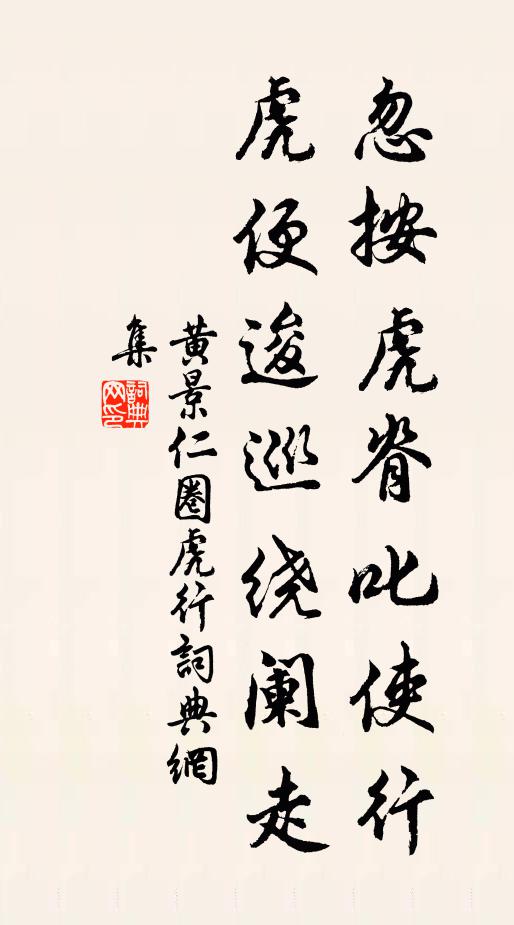 忽按虎脊叱使行
虎便逡巡绕阑走
黄景仁圈虎行詞典網
集
詞典
网印